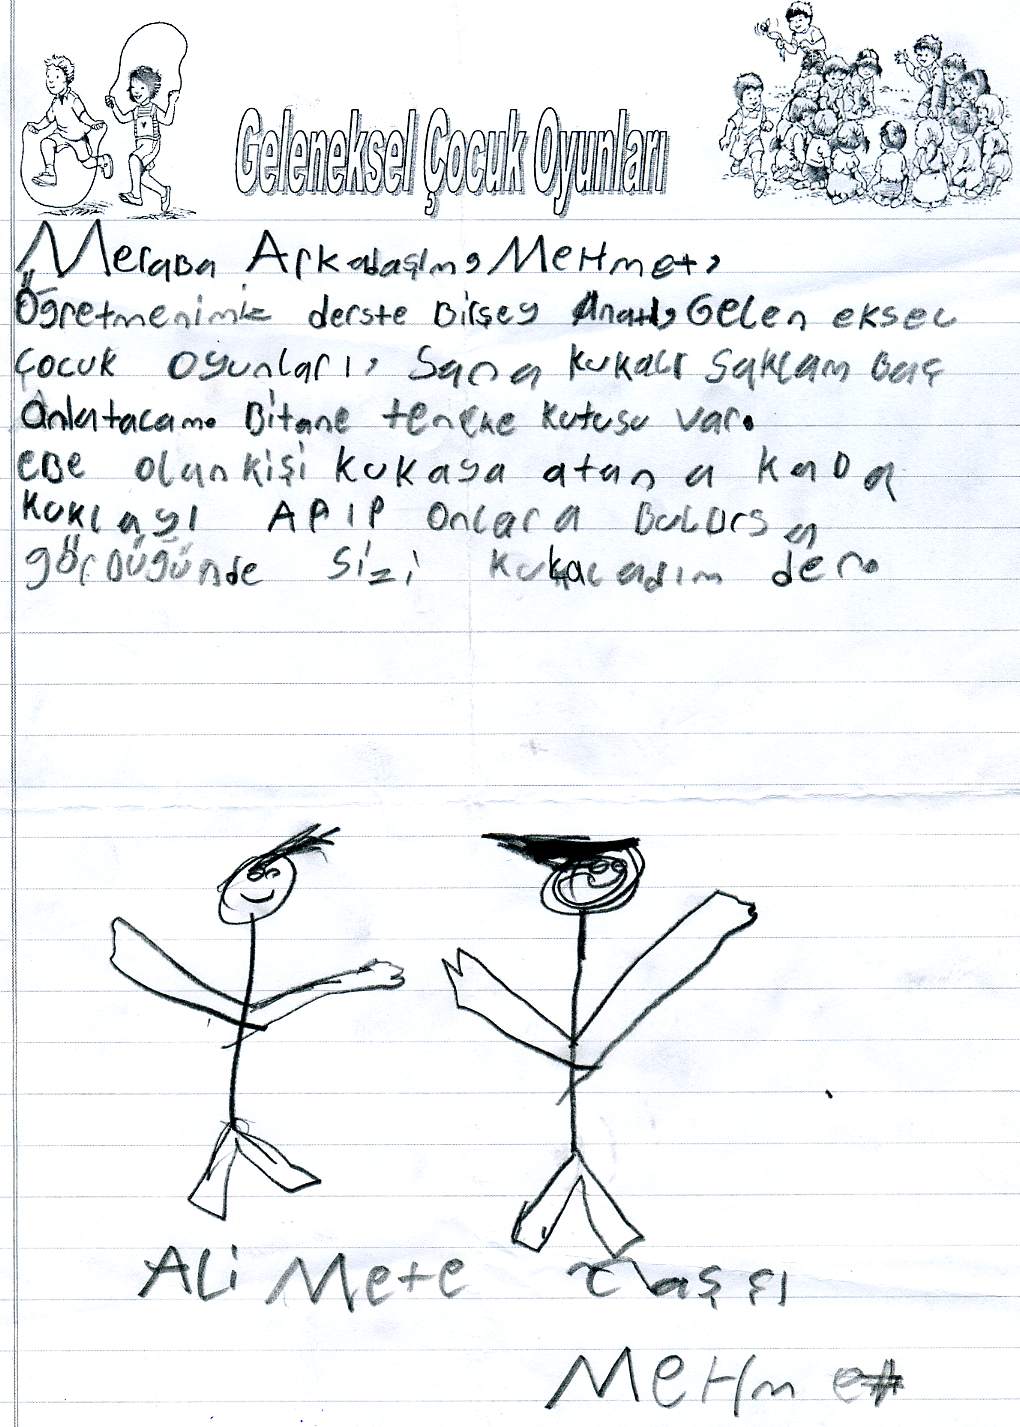 Geleneksel Çocuk Oyunları
Meraba Arkadaşım, Mehmet,
Öğretmenimiz derste Birşey Anattı, Gelen eksel
çocuk oyunları, Sana kukalı Saklam Baç
Anlatacam. Bitane teneke kutusu var.
eBe olan kişi kukaya atan a kaDa
kuklayı APIP Onlara BuLursa
görDüğünde sizi kukaladım der.
Ali Mete Taşçı
Mehmet